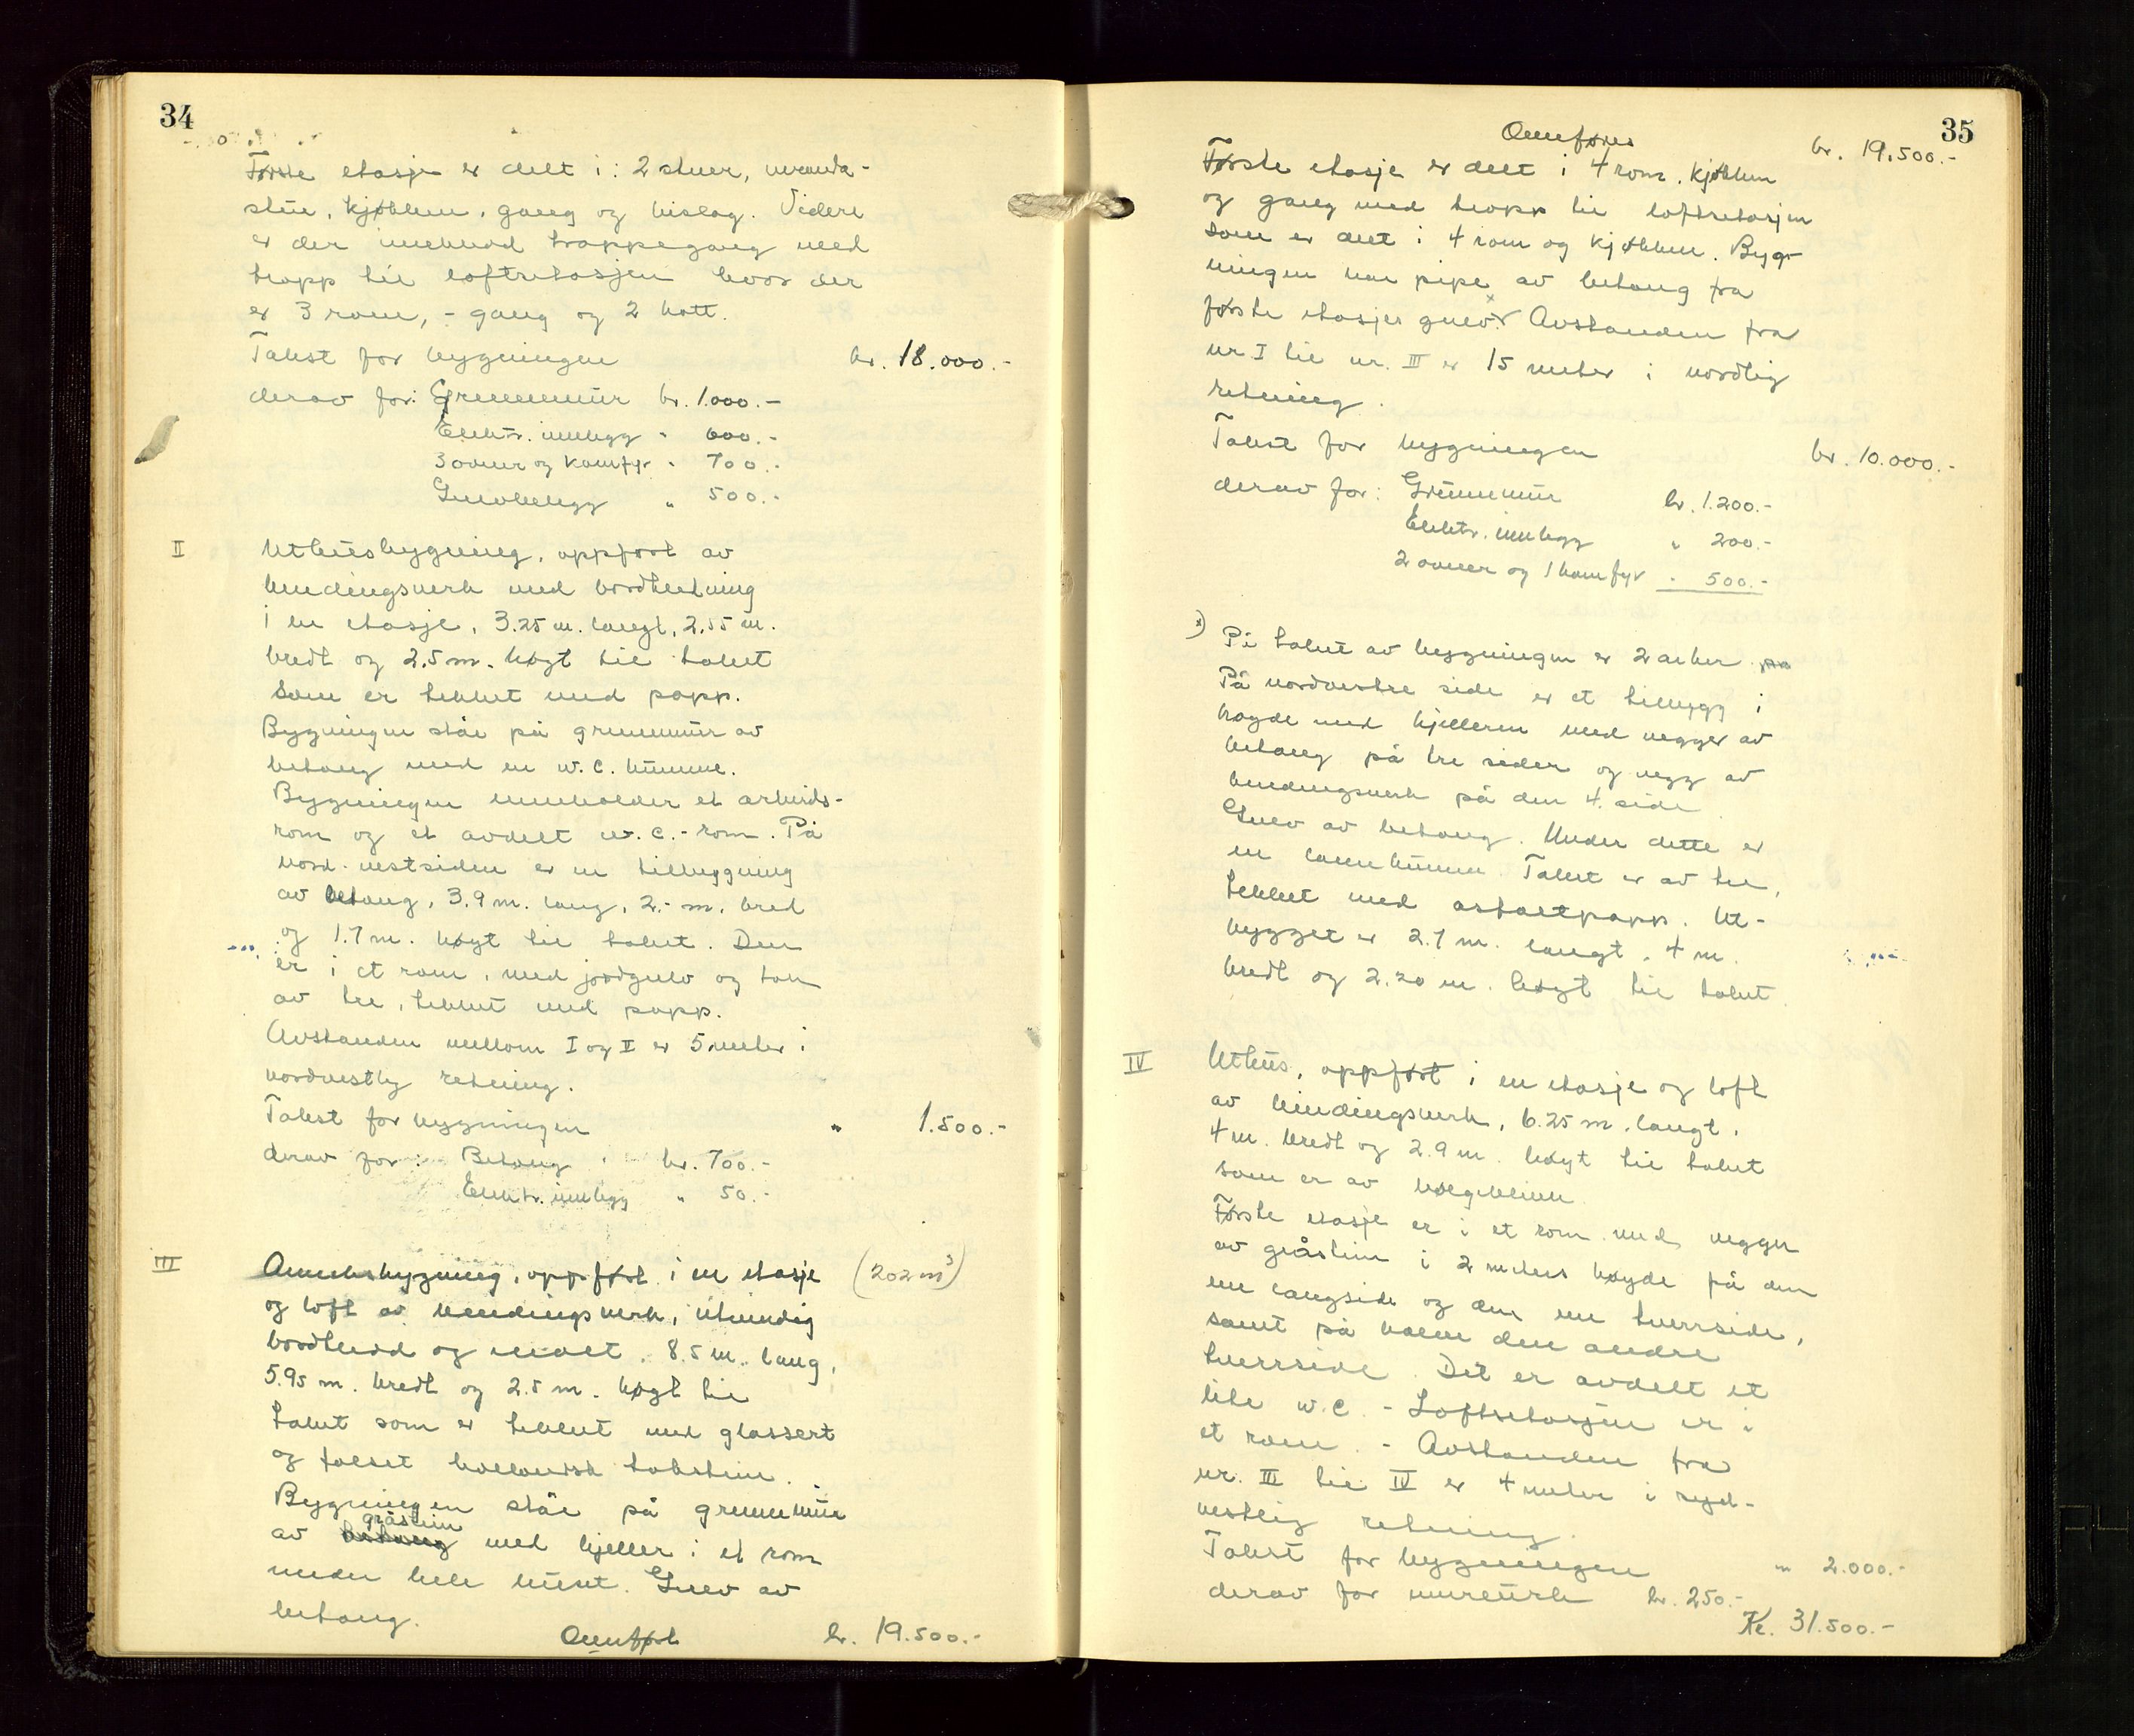 34
Første etasje er delt i: 2 stuer, veranda-
stue, kjøkken, gang og bislag. Videre
er der innebund trappegang med
trapp til loftsetasjen hvor der
er 3 rom, - gang og 2 kott.
Takst for bygningen kr. 18.000.-
derav for: Grunnmur kr. 1.000.-
Elektr. innlegg " 600.-
3 ovner og komfyr " 700.-
Gulvbelegg " 500.-
II Uthusbygning, oppført av
bindingsverk med bordkledning
i en etasje, 3.25 m. langt, 2.55 m.
bredt og 2.5 m. høgt til taket
som er tekket med papp.
Bygningen står på grunnmur av
betong med en w.c. kumme.
Bygningen inneholder et arbeids-
rom og et avdelt w.c.-rom. På
nord-vestsiden er en tilbygning
av betong, 3.9 m. lang, 2.- m. bred
og 1.7 m. høgt til taket. Den
er i et rom, med jordgulv og tak
av tre, tekket med papp.
Avstanden mellom I og II er 5 meter i
nordvestlig retning.
Takst for bygningen " 1.500.-
derav for: Betong kr. 700.-
Elektr. innlegg " 50.-
III Anneksbygning, oppført i en etasje (202 m³)
og loft av bindingsverk, utvendig
bordkledd og malt. 8.5 m. lang,
5.95 m. bredt og 2.5 m. høgt til
taket som er tekket med glassert
og falset hollandsk takstein.
Bygningen står på grunnmur
gråstein
av betong med kjeller i et rom
under hele huset. Gulv av
betong.
Overført kr. 19.500.-
35
Overføres kr. 19.500.-
Første etasje er delt i 4 rom, kjøkken
og gang med trapp til loftsetasjen
som er delt i 4 rom og kjøkken. Byg-
ningen har pipe av betong fra
første etasjes gulv. x Avstanden fra
nr. I til nr. III er 15 meter i nordlig
retning.
Takst for bygningen kr. 10.000.-
derav for: Grunnmur kr. 1.200.-
Elektr. innlegg " 200.-
2 ovner og 1 komfyr " 500.-
x) På taket av bygningen er 2 arker på
På nordvestre side er et tilbygg i
høyde med kjelleren med vegger av
betong på tre sider og vegg av
bindingsverk på den 4. side.
Gulv av betong. Under dette er
en kumme. Taket er av tre,
tekket med asfaltpapp. Ut-
bygget er 2.7 m. langt, 4 m.
bredt og 2.20 m. høgt til taket.
IV Uthus, oppført i en etasje og loft
av bindingsverk, 6.25 m. langt,
4 m. bredt og 2.9 m. høgt til taket
som er av bølgeblikk.
Første etasje er i et rom med vegger
av gråstein i 2 meters høyde på den
ene langside og den ene tverrside,
samt på halve den andre
tverrside. Det er avdelt et
lite w.c. - Loftsetasjen er i
et rom. - Avstanden fra
nr. III til IV er 4 meter i syd-
vestlig retning.
Takst for bygningen " 2.000.-
derav for murverk kr. 250.-
Kr. 31.500.-